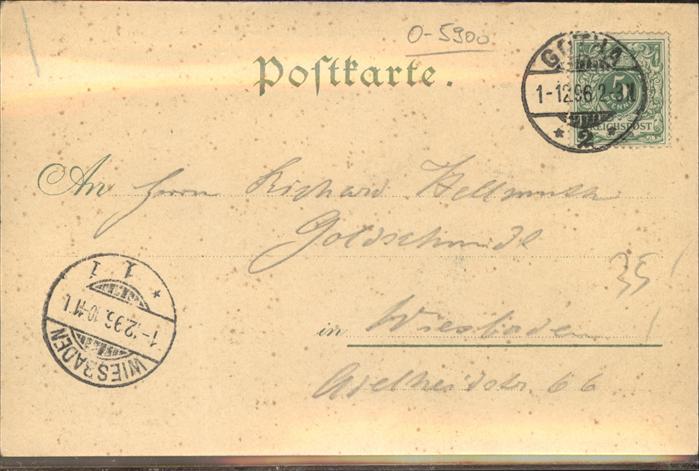 O-5900
Postkarte.
GOTHA
1-12 96 2-3N
* 2
5
REICHSPOST
An Herrn Richard Hellmuth
Goldschmidt
35
in Wiesbaden
Adelheidstr. 66
WIESBADEN
1-12.96.10-11 V.
* 1 i